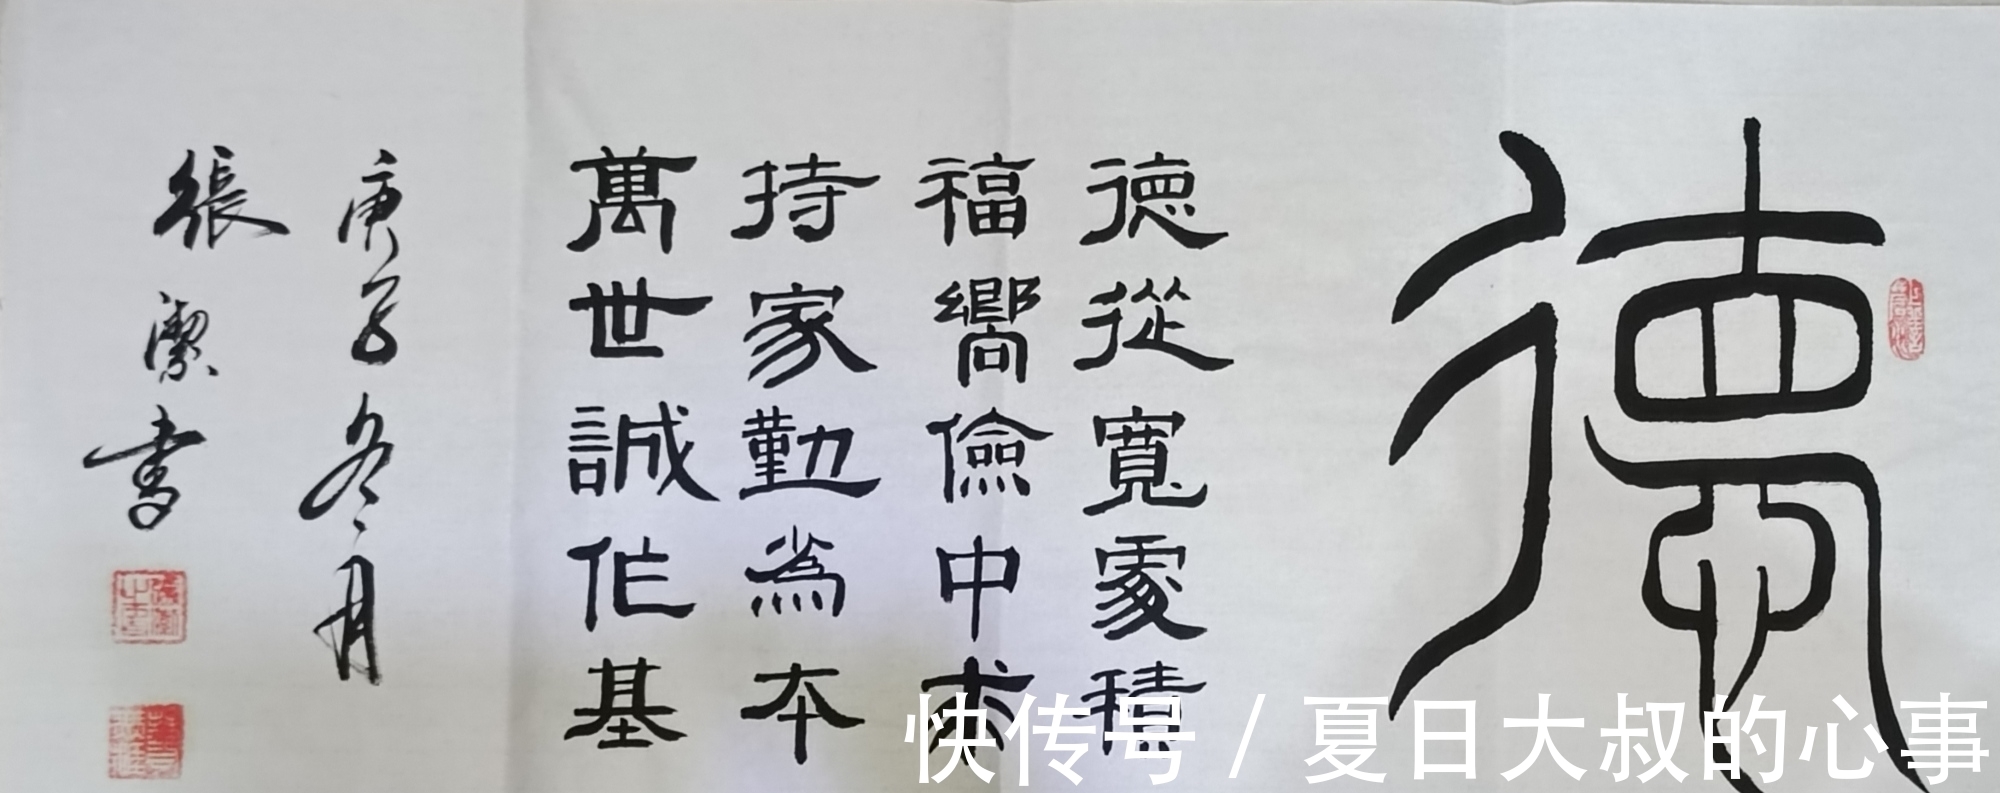 德
德從寬處積
福嚮儉中求
持家勤為本
萬世誠作基
庚子冬月
張潔書
快传号/夏日大叔的心事